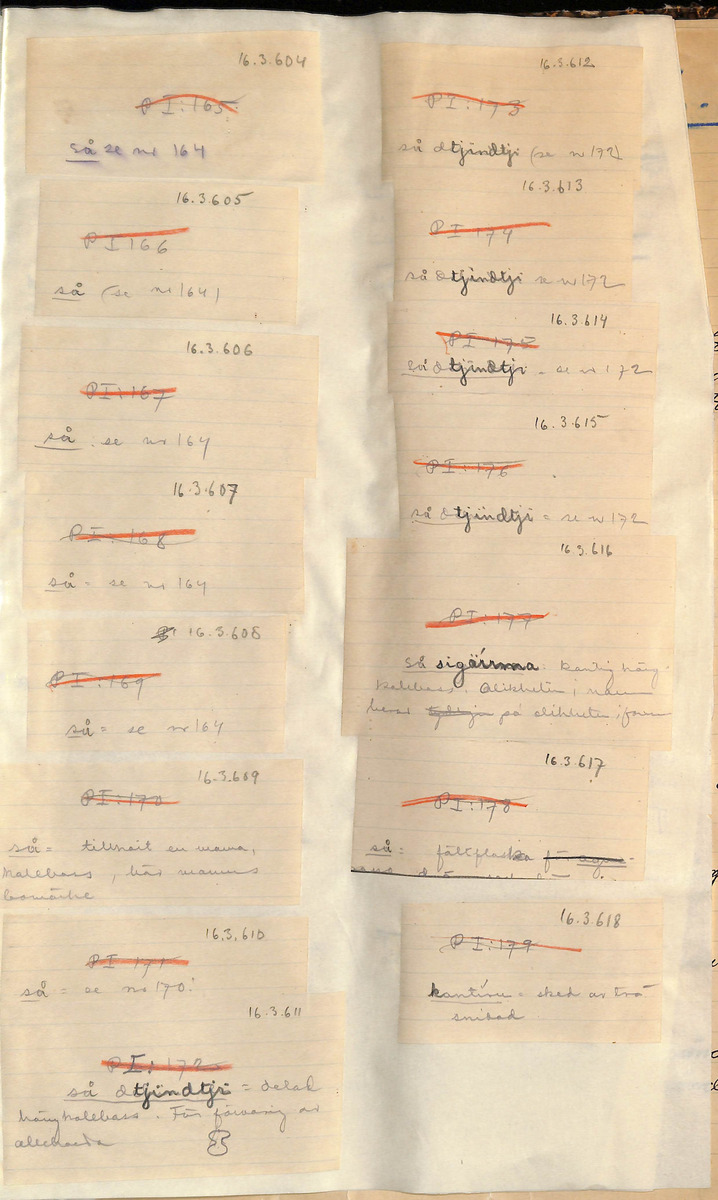 16.3.604
P I:165
så se nr 164
16.3.605
P I 166
så (se nr 164)
16.3.606
P I:167
så : se nr 164
16.3.607
P I:168
så = se nr 164
16.3.608
P I:169
så = se nr 164
16.3.609
P I:170
så = tillhört en mama,
kalebass, bär mamans
bomärke
16.3.610
P I 171
så = se nr 170.
16.3.611
P I:172
så dtjindtji = delad
hängkalebass. För förvaring av
allehanda
16.3.612
P I:173
så dtjindtji (se nr 172)
16.3.613
P I 174
så dtjindtji se nr 172
16.3.614
P I 175
så dtjindtji = se nr 172
16.3.615
P I:176
så dtjindtji = se nr 172
16.3.616
P I:177
så kantig häng
kalebass. Olikheten i namn
beror på olikheten i form
16.3.617
P I:178
så = fältflaska för
16.3.618
P I:179
= sked av trä
snidad